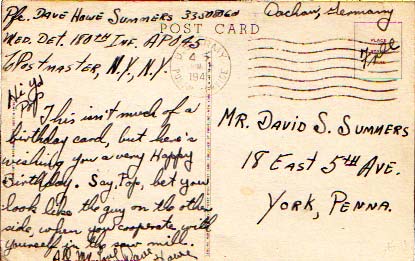 Pfc. Dave Howe Summers
Dachau, Germany
POST CARD
Med. Det. 180th Inf. APO 45
℅ Postmaster, N.Y., N.Y.
Free
Hi ya
Pop
This isn't much of a
birthday card, but here's
wishing you a very Happy
Birthday. Say, Pop, bet you
look like the guy on the other
side, when you cooperate with
yourself in the saw mill.
All My Love
Dave
Howe
Mr. David S. Summers
18 East 5th Ave.
York, Penna.